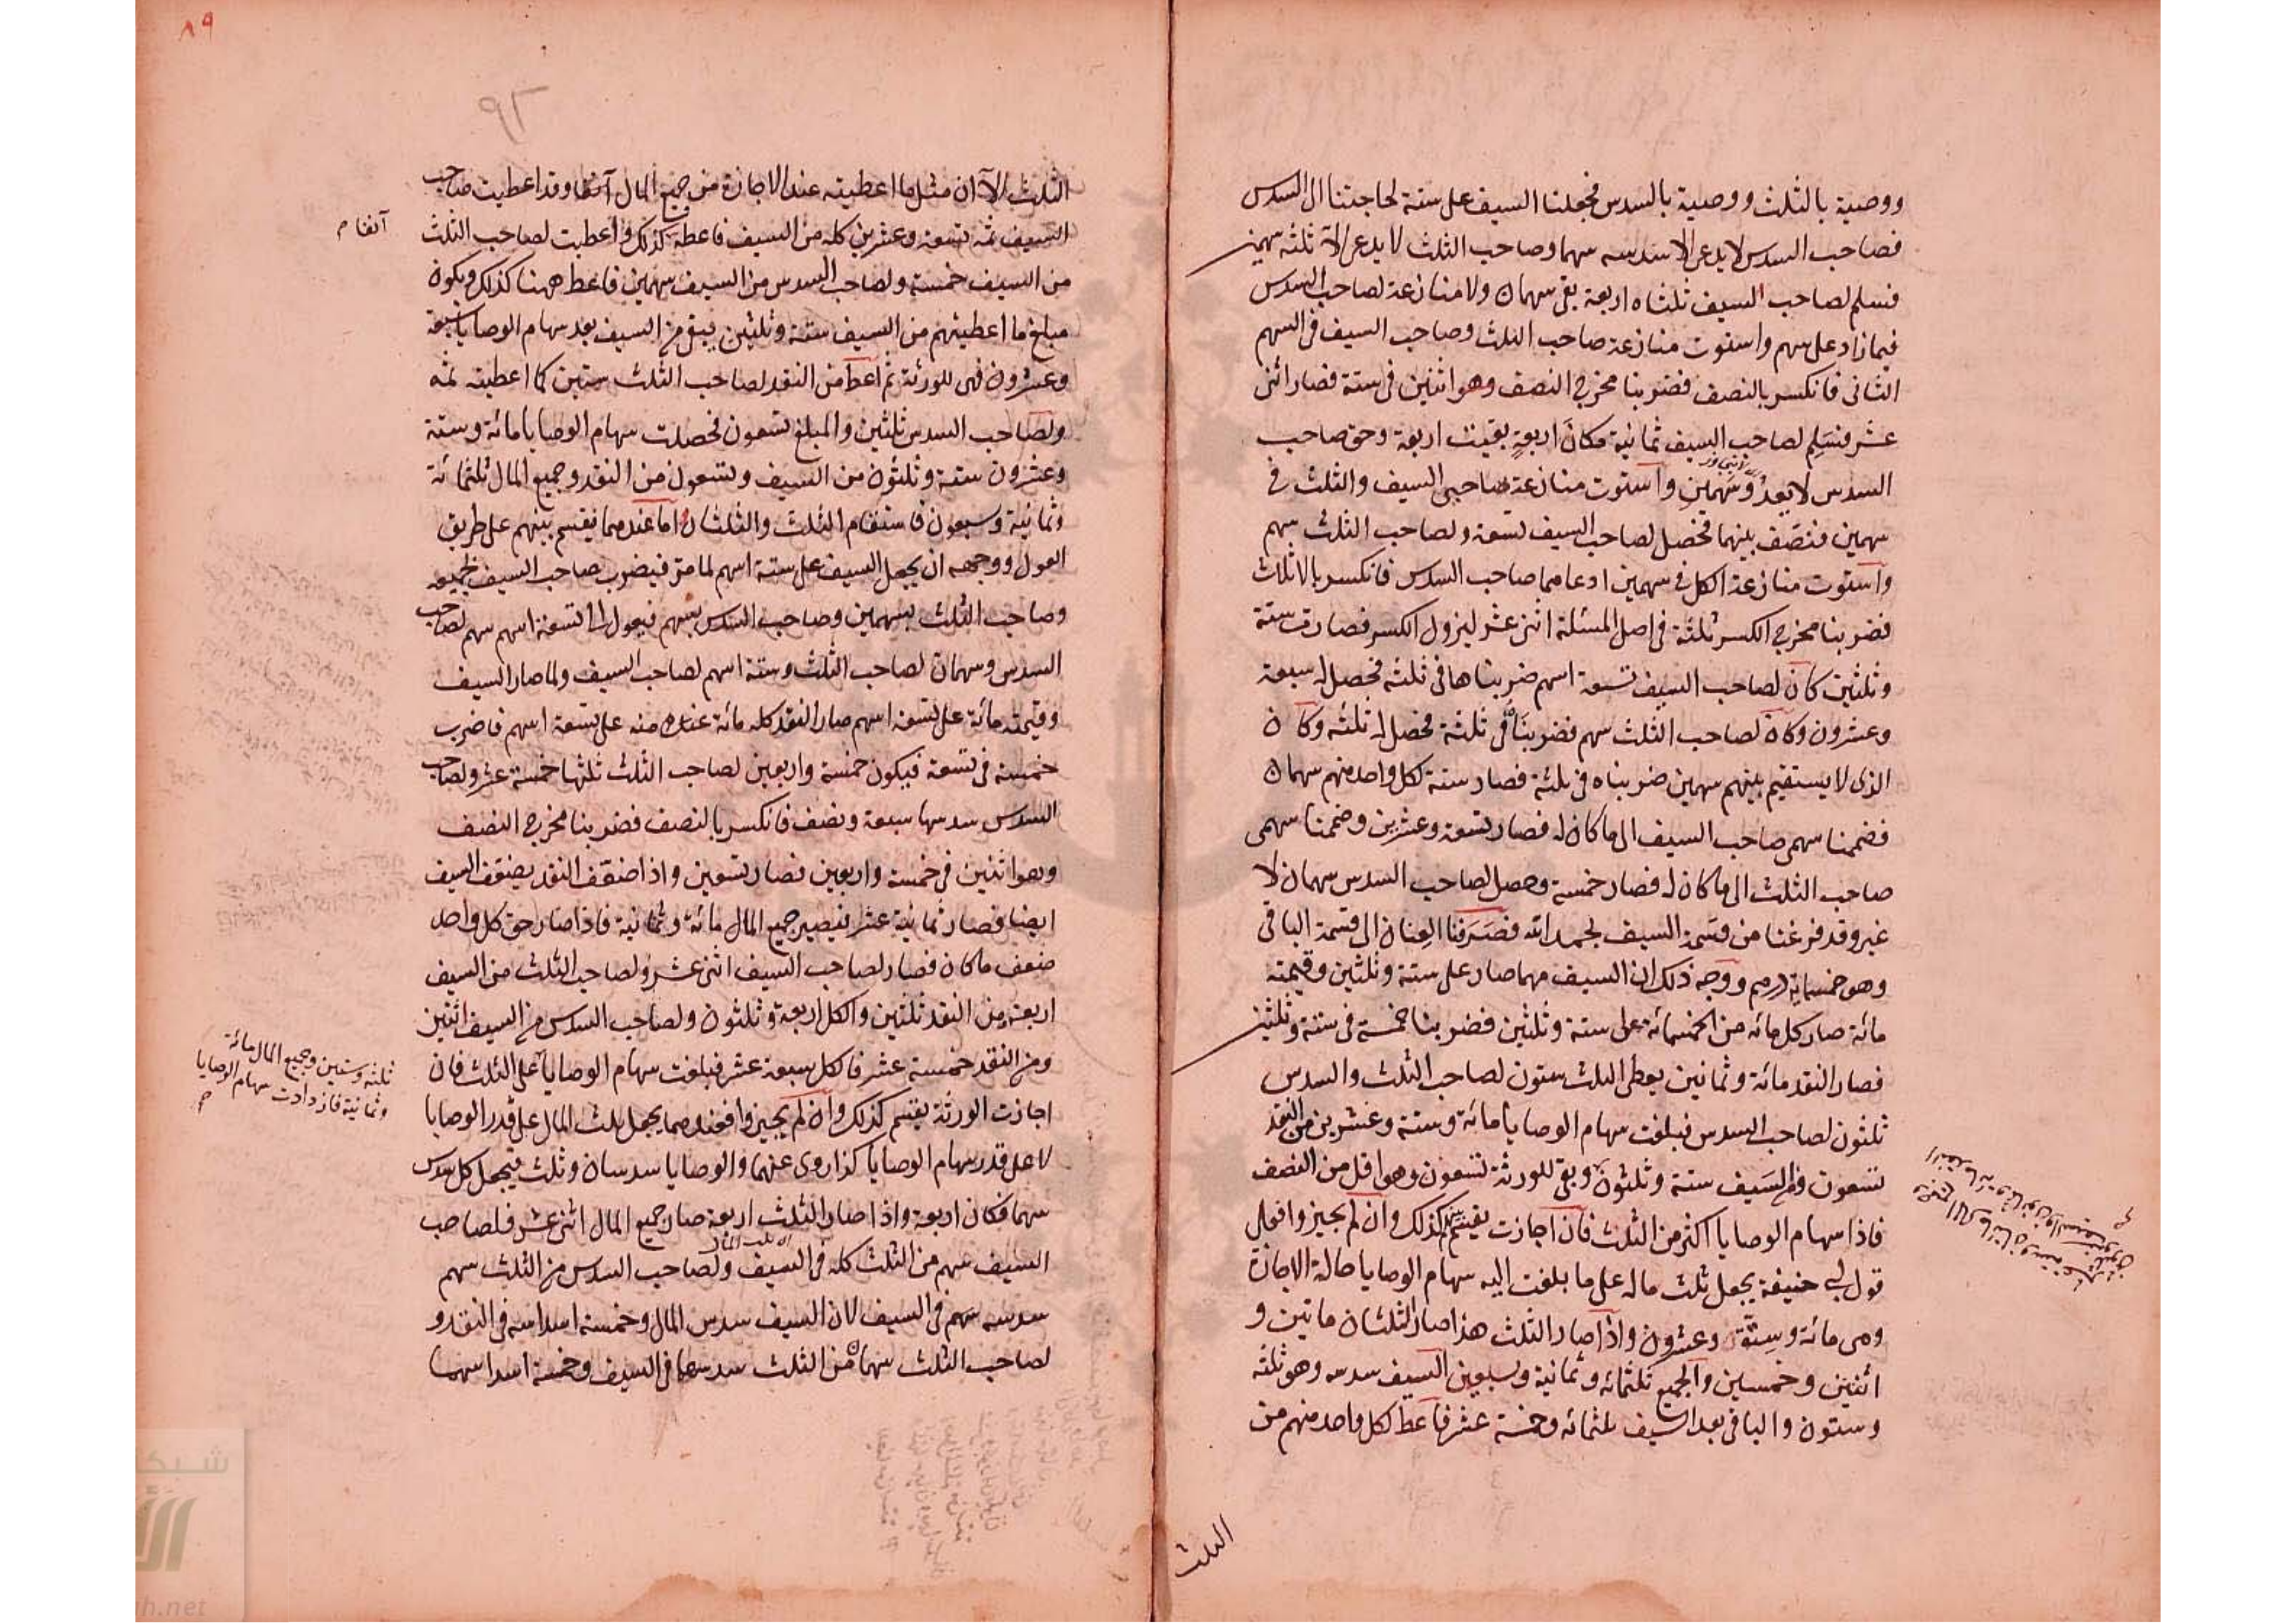 ووصية بالثلث ووصية بالسدس فجعلنا السيف على ستة لحاجتنا الى السدس
فصاحب السدس لا يدعى الا سدسه سهما وصاحب الثلث لا يدعى الا ثلثه سهمين
فنسلم لصاحب السيف ثلثاه اربعة بقى سهمان ولا منازعة لصاحب السدس
فيما زاد على سهم واستوت منازعة صاحب الثلث وصاحب السيف فى السهم
الثانى فانكسر بالنصف فضربنا مخرج النصف وهو اثنين فى ستة فصار اثنى
عشر فنسلم لصاحب السيف ثمانية مكان اربعة بقيت اربعة وحق صاحب
السدس لا يعدو سهمين واستوت منازعة صاحبى السيف والثلث فى
سهمين فنصف بينهما فحصل لصاحب السيف تسعة ولصاحب الثلث سهم
واستوت منازعة الكل فى سهمين ادعاهما صاحب السدس فانكسر بالاثلاث
فضربنا مخرج الكسر ثلثة فى اصل المسئلة اثنى عشر ليزول الكسر فصارت ستة
وثلثين كان لصاحب السيف تسعة اسهم ضربناها فى ثلثه فحصل له سبعة
وعشرون وكان لصاحب الثلث سهم فضربناه فى ثلثة فحصل له ثلثه وكان
الذى لا يستقيم بينهم سهمين ضربناه فى ثلثة فصار ستة لكل واحد منهم سهمان
فضممنا سهمى صاحب السيف الى ما كان له فصار تسعة وعشرين وضممنا سهمى
صاحب الثلث الى ما كان له فصار خمسة وحصل لصاحب السدس سهمان لا
غير وقد فرغنا من قسمة السيف بحمد الله فصرفنا العنان الى قسمة الباقى
وهو خمسماية درهم ووجه ذلك ان السيف مهما صار على ستة وثلثين وقيمته
مائة صار كل مائه من الخمسمائة على ستة وثلثين فضربنا خمسة فى ستة وثلثين
فصار النقد مائة وثمانين يعطى الثلث ستون لصاحب الثلث والسدس
ثلثون لصاحب السدس فبلغت سهام الوصايا مائة وستة وعشرين من النقد
تسعون ومن السيف ستة وثلثون وبقى للورثة تسعون وهو اقل من النصف
فاذا سهام الوصايا اكثر من الثلث فان اجازت يقسم كذلك وان لم يجيزوا فعلى
قول ابى حنيفة يجعل ثلث ماله على ما بلغت اليه سهام الوصايا حالة الاجازة
وهى مائة وستة وعشرون واذا صار الثلث هذا صار الثلثان مائتين و
اثنين وخمسين والجميع ثلثمائه وثمانية وسبعين السيف سدسه وهو ثلثه
وستون والباقى بعد السيف ثلثمائه وخمسة عشر فاعط لكل واحد منهم من
الثلث
الثلث الآن مثل ما اعطيته عند الاجازة من جميع المال آنفا وقد اعطيت صاحب
السيف ثمه تسعة وعشرين كله من السيف فاعطه كذلك واعطيت لصاحب الثلث
آنفا م
من السيف خمسة ولصاحب السدس من السيف سهمين فاعط ههنا كذلك ويكون
مبلغ ما اعطيتهم من السيف ستة وثلثين يبقى من السيف بعد سهام الوصايا سبعة
وعشرون فهى للورثة ثم اعط من النقد لصاحب الثلث ستين كما اعطيته ثمه
ولصاحب السدس ثلثين والمبلغ تسعون فحصلت سهام الوصايا مائة وستة
وعشرون ستة وثلثون من السيف وتسعون من النقد وجميع المال ثلثمائة
وثمانية وسبعون فاستقام الثلث والثلثان واما عندهما يقسم بينهم على طريق
العول ووجهه ان يجعل السيف على ستة اسهم لما مر فيضرب صاحب السيف بجميعه
وصاحب الثلث بسهمين وصاحب السدس بسهم فيعول الى تسعة اسهم سهم لصاحب
السدس وسهمان لصاحب الثلث وستة اسهم لصاحب السيف ولما صار السيف
وقيمته مائة على تسعة اسهم صار النقد كله مائة منه على تسعة اسهم فاضرب
خمسة فى تسعة فيكون خمسة واربعين لصاحب الثلث ثلثها خمسة عشر ولصاحب
السدس سدسها سبعة ونصف فانكسر بالنصف فضربنا مخرج النصف
وهو اثنين فى خمسة واربعين فصار تسعين واذا ضعف النقد يضعف السيف
ايضا فصار ثمانية عشر فيصير جميع المال مائة وثمانية فاذا صار حق كل واحد
ضعف ما كان فصار لصاحب السيف اثنى عشر ولصاحب الثلث من السيف
اربعة ومن النقد ثلثين والكل اربعة وثلثون ولصاحب السدس من السيف اثنين
ومن النقد خمسة عشر فالكل سبعة عشر فبلغت سهام الوصايا على الثلث فان
ثلثه وستين وجميع المال مائة
وثمانية فازدادت سهام الوصايا
اجازت الورثة يقسم كذلك وان لم يجيزوا فعندهما يجعل ثلث المال على قدر الوصايا
لا على قدر سهام الوصايا كذا روى عنهما والوصايا سدسان وثلث فيجعل كل سدس
سهما فكان اربعة واذا صار الثلث اربعة صار جميع المال اثنى عشر فلصاحب
السيف سهم من الثلث كله فى السيف ولصاحب السدس من الثلث سهم
سدسه سهم فى السيف لان السيف سدس المال وخمسة اسداسه فى النقد و
لصاحب الثلث سهمان من الثلث سدسهما فى السيف وخمسة اسداسهما
٨٩
٩٢